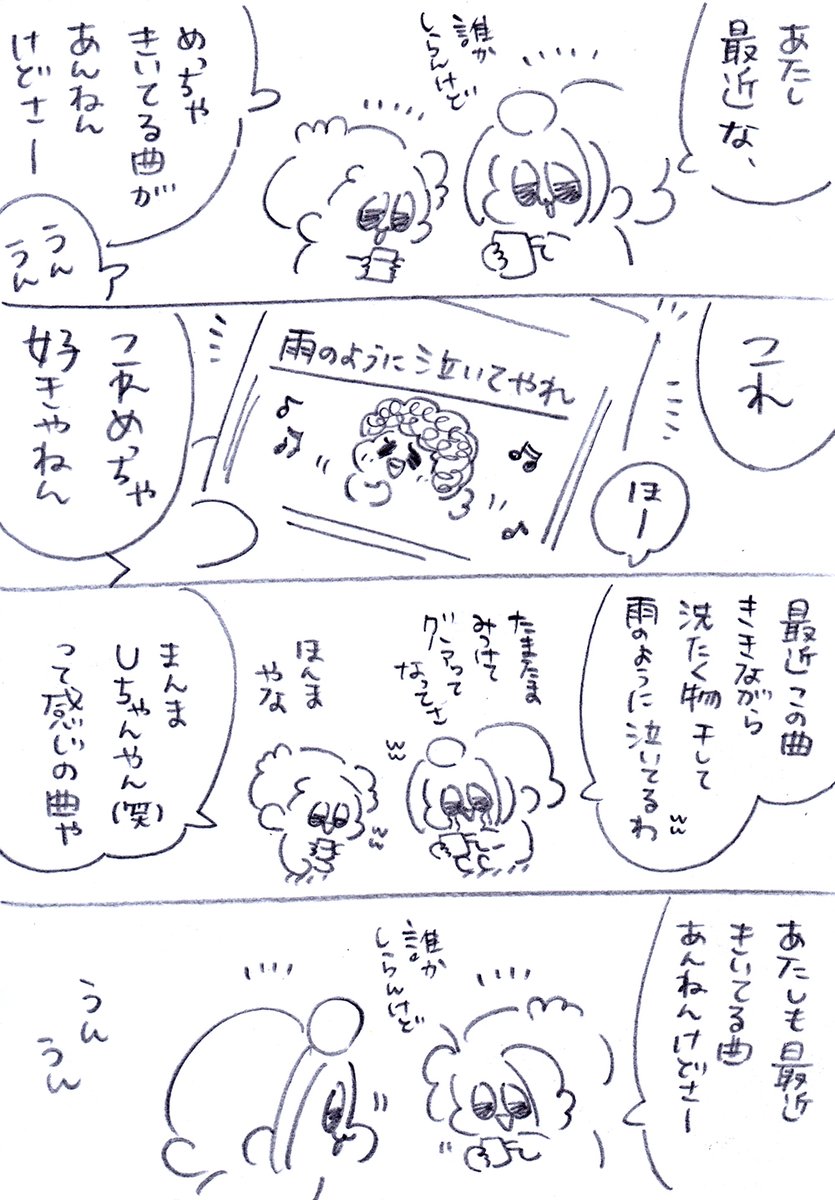 あたし
最近な、
誰か
しらんけど
めっちゃ
きいてる曲が
あんねん
けどさー
うん
うん
これ
雨のように泣いてやれ
ほー
これめっちゃ
好きやねん
最近この曲
ききながら
洗たく物干して
雨のように泣いてるわ
たまたま
みつけて
グアって
なってさ
ほんま
やな
まんま
Uちゃんやん(笑)
って感じの曲や
あたしも最近
きいてる曲
あんねんけどさー
誰か
しらんけど
うん
うん